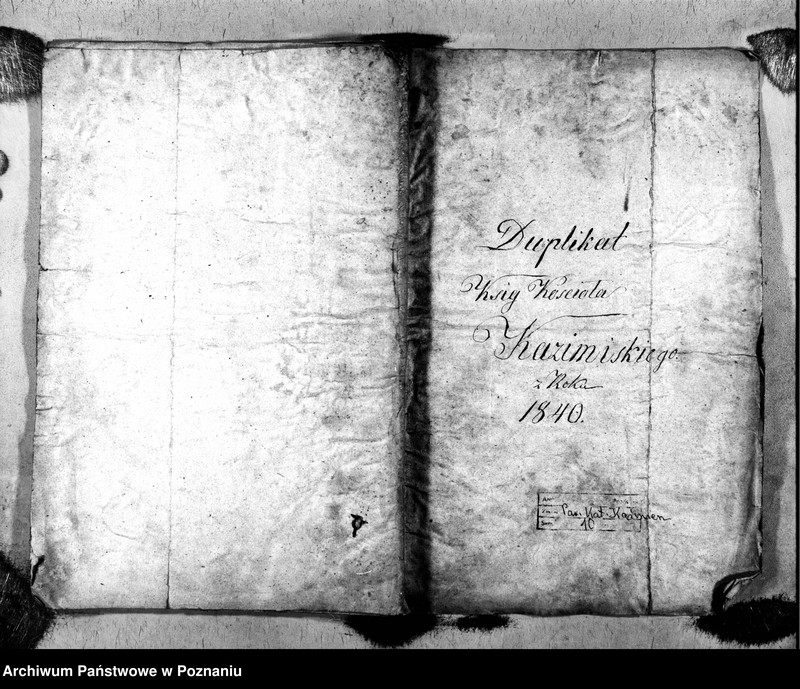 Duplikat
Xsiy Kościoła
Kazimiskiego.
z Roku
1840.
Par. Kat. Kaźmierz
10
Archiwum Państwowe w Poznaniu